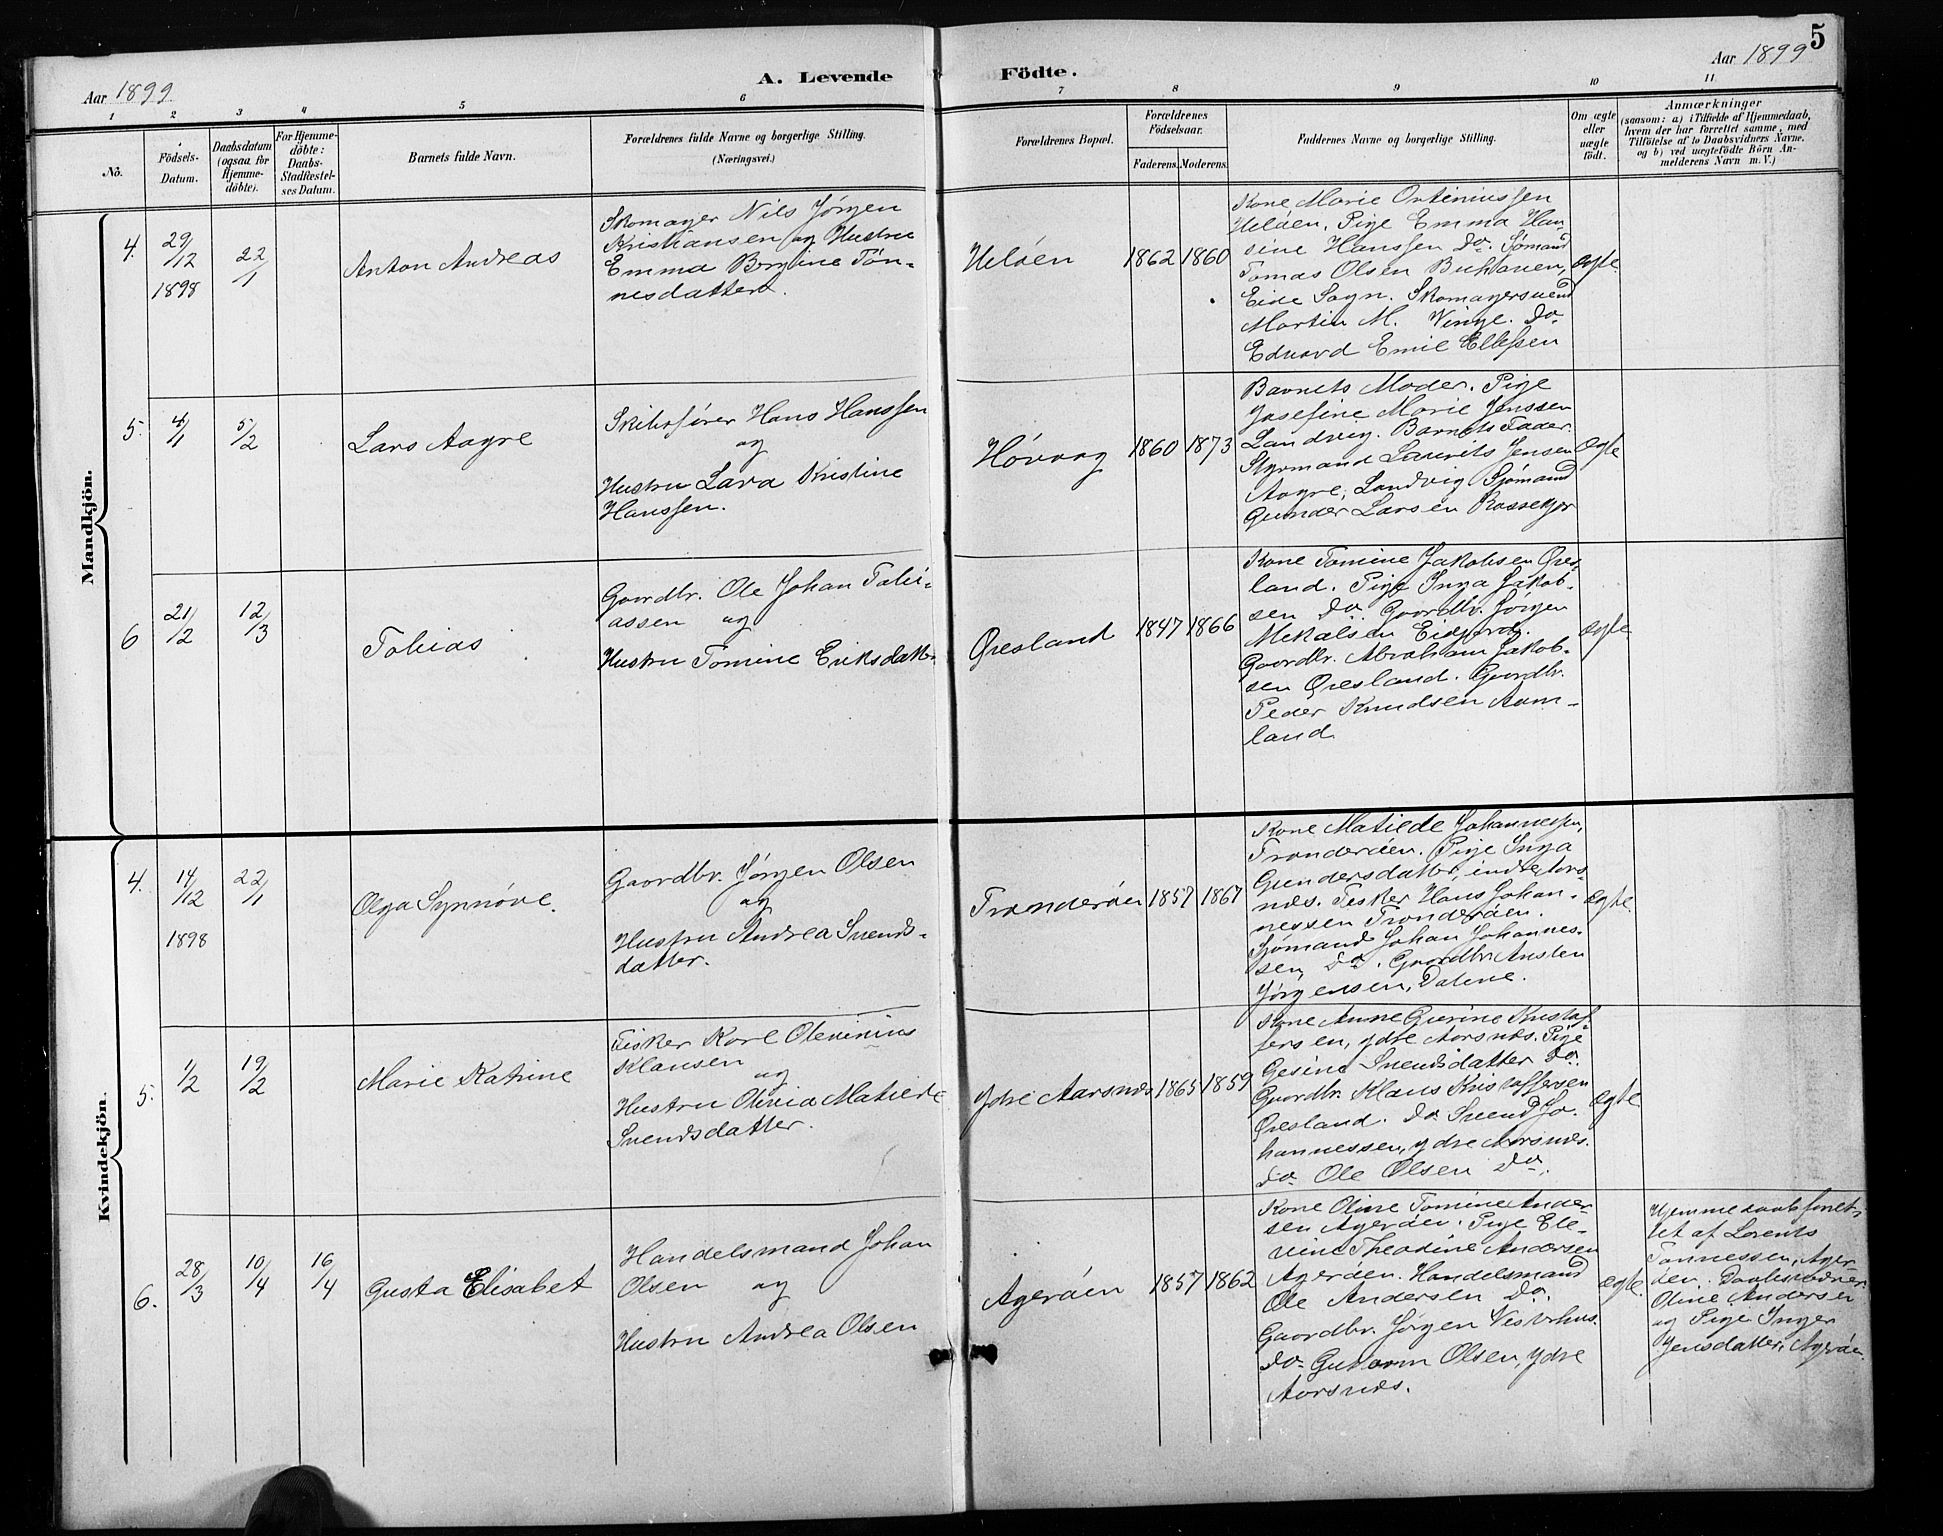 5
Aar 1899
A. Levende Födte.
Aar 1899
1 2 3 4 5 6 7 8 9 10 11
No.
Födsels-Datum.
Daabsdatum (ogsaa for Hjemmedöbte).
For Hjemmedöbte: Daabs-Stadfæstelses Datum.
Barnets fulde Navn.
Forældrenes fulde Navne og borgerlige Stilling.
(Næringsvei.)
Forældrenes Bopæl.
Forældrenes Födselsaar.
Faderens. Moderens.
Faddernes Navne og borgerlige Stilling.
Om ægte eller uægte födt.
Anmærkninger
(saasom: a) i Tilfælde af Hjemmedaab,
hvem der har forrettet samme, med
Tilföielse af to Daabsvidners Navne.
og b) ved uægtefödte Börn An-
melderens Navn m. V.)
Mandkjön.
4.
29/12 1898
22/1
Anton Andreas
Skomager Nils Jörgen
Kristiansen og Hustru
Emma Bergine Tön-
nesdatter.
Helöen
1862 1860
Kone Marie Orteniussen
Helöen. Pige Emma Han-
sine Hanssen do. Sömand
Tomas Olsen Buhaven,
Eide Sogn. Skomagersvend
Martin M. Vinge. Do
Edvard Emil Ellefsen
ægte.
5.
4/1
5/2
Lars Aagre
Skibsförer Hans Hanssen
og
Hustru Lava Kristine
Hanssen.
Hövaag
1860 1873
Barnets Moder. Pige
Josefine Marie Jenssen
Landvig. Barnets Fader.
Styrmand Laurits Jensen
Aagre, Landvig Sjömand
Gunder Larsen Rossekjær
ægte
6
21/2
12/3
Tobias
Gaardbr. Ole Johan Tobi-
assen og
Hustru Tomine Eriksdatter
Øresland
1847 1866
Kone Tomine Jakobsen Øres-
land. Pige Inga Jakob-
sen Do. Gaardbr. Jörgen
Mekalsen Eidjord.
Gaardbr. Abraham Jakob-
sen Øresland. Gaardbr.
Peder Knudsen Aam-
land.
ægte
Kvindekjön.
4.
14/12
1898
22/1
Olga Synnöve.
Gaardbr. Jörgen Olsen
og
Hustru Andrea Svends-
datter.
Tronderöen
1857 1867
Kone Matilde Johannessen,
Tronderöen. Pige Inga
Gundersdatter, indre Aars-
næs. Fisker Hans Johan-
nessen Tronderöen.
Sjömand Johan Johannes-
sen, do. Gaardbr. Ansten
Jörgensen, Dalene.
ægte.
5.
1/2
19/2
Marie Katrine
Fisker Karl Olevinius
Klausen
og
Hustru Olivia Matilde
Svendsdatter.
Ydre Aarsnæs
1865 1859
Kone Anne Gurine Kristof-
fersen, ydre Aarsnæs. Pige
Gesine Svendsdatter Do.
Gaardbr. Klaus Kristoffersen
Øresland. Do Svend Jo-
hannessen, ydre Aarsnæs.
Do Ole Olsen Do.
ægte
6.
28/3
10/4
16/4
Gusta Elisabet
Handelsmand Johan
Olsen og
Hustru Andrea Olsen
Ageröen
1857 1862
Kone Oline Tomine Ander-
sen Ageröen. Pige Ele-
vine Theodine Andersen
Ageröen. Handelsmand
Ole Andersen Do.
Gaardbr. Jörgen Vestrhus.
Do Guttorm Olsen, ydre
Aarsnæs.
ægte.
Hjemmedaab forret-
tet af Lorents
Tönnessen, Ager-
öen. Daabsvidner:
Oline Andersen
og Pige Inger
Jensdatter, Ageröen.